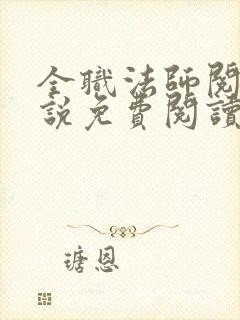 全職法師閱
說免費閱讀
瑭恩